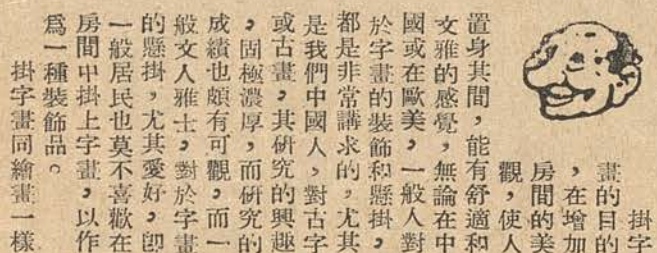 掛字
畫的目的
，在增加
房間的美
觀，使人
置身其間，能有舒適和
文雅的感覺，無論在中
國或在歐美，一般人對
於字畫的裝飾和懸掛，
都是非常講求的，尤其
是我們中國人，對古字
或古畫，其研究的興趣
，固極濃厚，而研究的
成績也頗有可觀，而一
般文人雅士，對於字畫
的懸掛，尤其愛好，卽
一般居民也莫不喜歡在
房間中掛上字畫，以作
爲一種裝飾品。
掛字畫同繪畫一樣